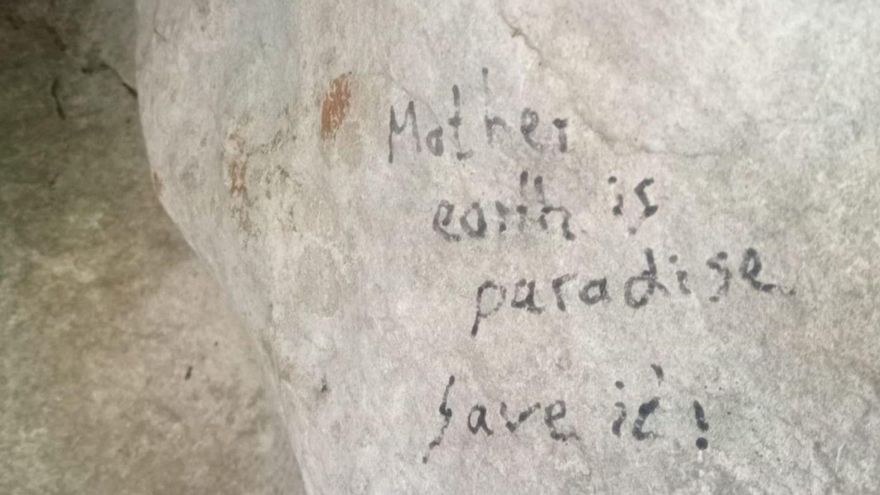 Mother
earth is
paradise
save it!